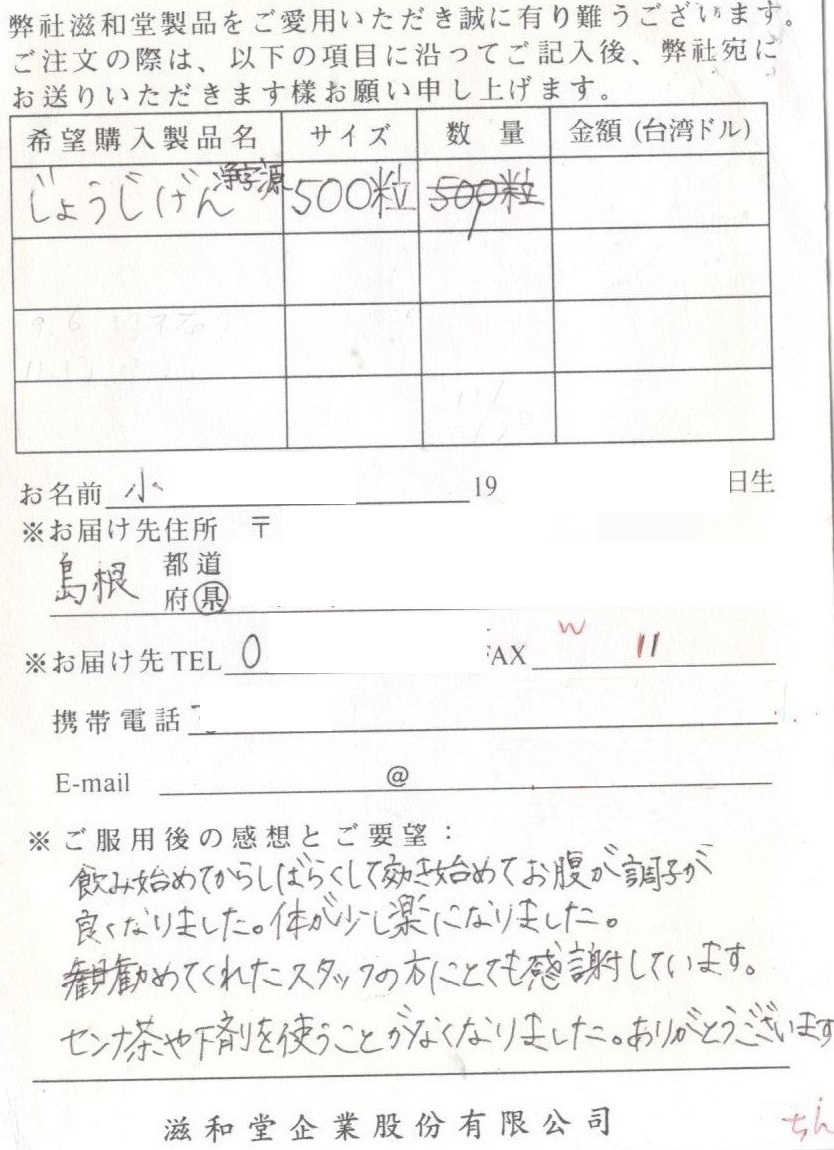 弊社滋和堂製品をご愛用いただき誠に有り難うございます。
ご注文の際は、以下の項目に沿ってご記入後、弊社宛に
お送りいただきます様お願い申し上げます。
希望購入製品名 サイズ 数量 金額(台湾ドル)
じょうじげん 浄字源 500粒 500粒
お名前 小 19 日生
※お届け先住所 〒
島根 都道
府県
※お届け先TEL 0 FAX W 11
携帯電話
E-mail @
※ご服用後の感想とご要望：
飲み始めてからしばらくして効き始めてお腹が調子が
良くなりました。体が少し楽になりました。
勧めてくれたスタッフの方にとても感謝しています。
センナ茶や下剤を使うことがなくなりました。ありがとうございます
滋和堂企業股份有限公司